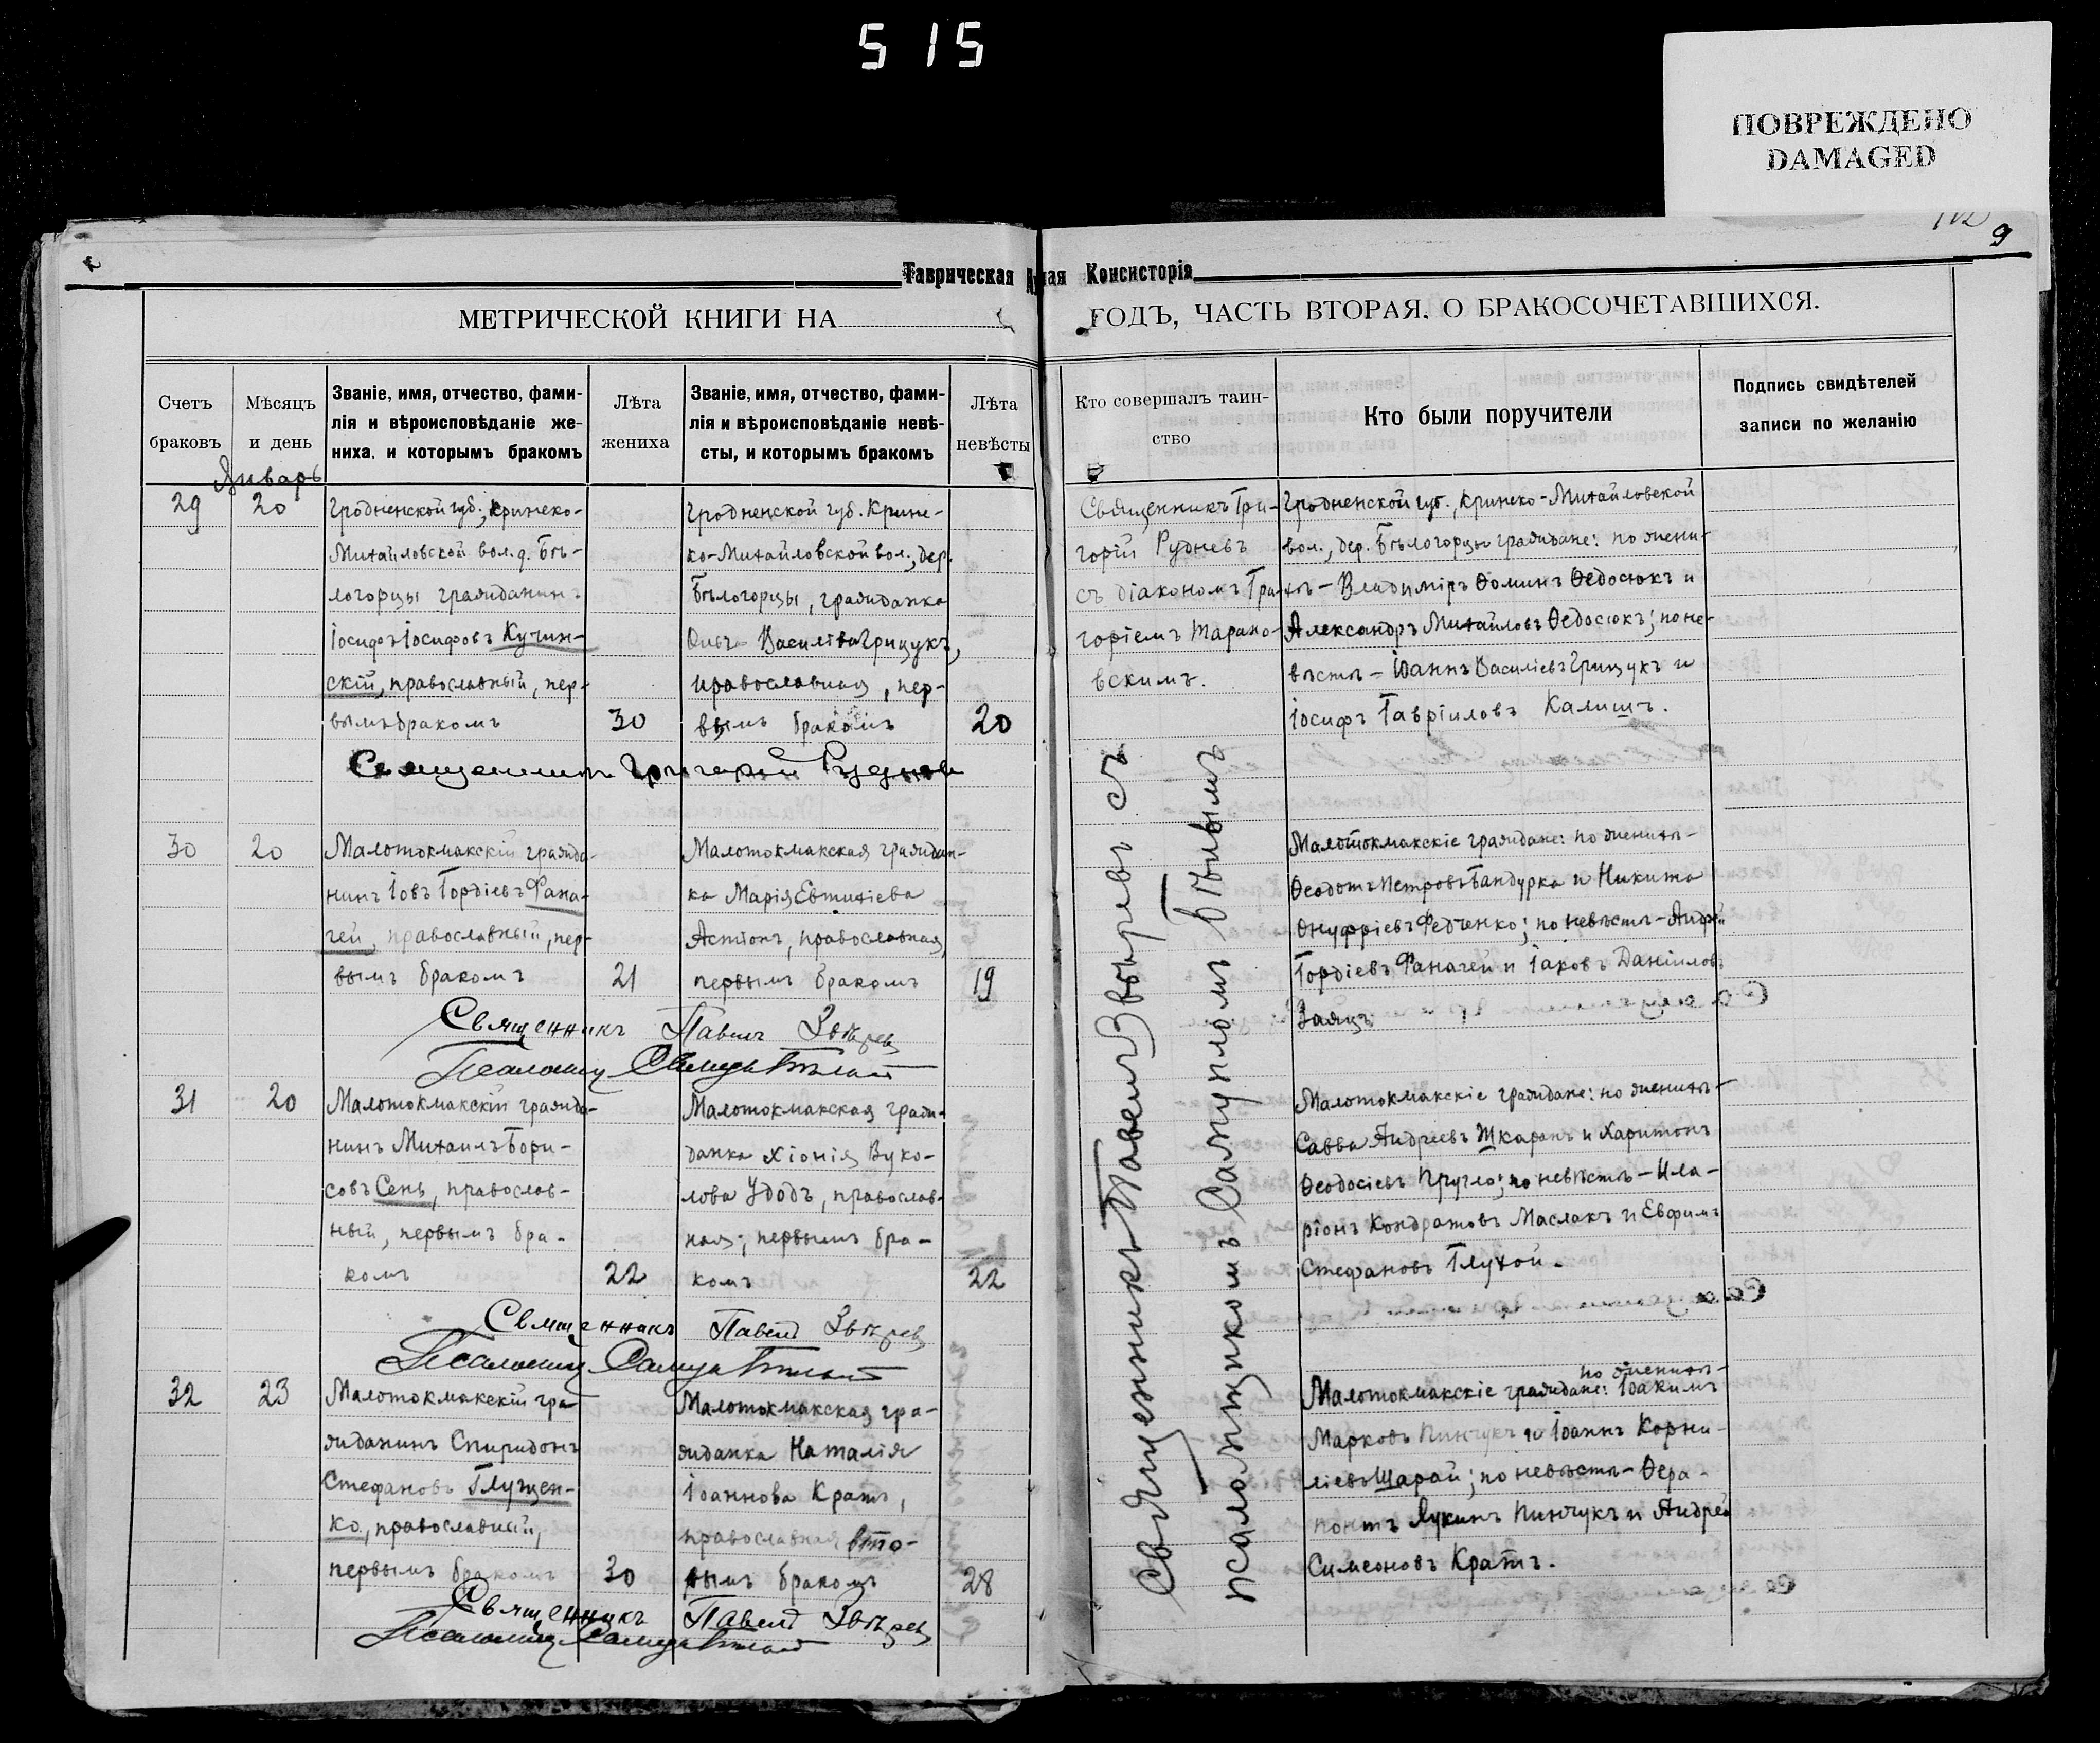 515
ПОВРЕЖДЕНО
DAMAGED
9
Таврическая
ная Консисторія
МЕТРИЧЕСКОЙ КНИГИ НА
ГОДЪ, ЧАСТЬ ВТОРАЯ, О БРАКОСОЧЕТАВШИХСЯ.
Счетъ
браковъ
Мѣсяцъ
и день
Званіе, имя, отчество, фами-
лія и вѣроисповѣданіе же-
ниха, и которымъ бракомъ
Лѣта
жениха
Званіе, имя, отчество, фами-
лія и вѣроисповѣданіе невѣ-
сты, и которымъ бракомъ
Лѣта
невѣсты
Кто совершалъ таин-
ство
Кто были поручители
Подпись свидѣтелей
записи по желанію
Январь
29
20
Гродненской губ., Кринско-
Михайловской вол. д. Бѣ-
логорцы гражданинъ
Іосифъ Іосифовъ Кучин-
скій, православный, пер-
вымъ бракомъ
30
Гродненской губ. Крин-
ко-Михайловской вол., дер.
Бѣлогорцы, гражданка
Васильева Грицукъ,
православная, пер-
вымъ бракомъ
20
Священникъ Гри-
горій Рудневъ
съ діакономъ Гри-
горіемъ Тарано-
вскимъ.
Гродненской губ., Кринско-Михайловской
вол., дер. Бѣлогорцы граждане: по жени-
хѣ - Владиміръ Ѳоминъ Ѳедосюкъ и
Александръ Михайловъ Ѳедосюкъ; по не-
вѣстѣ - Іоаннъ Василіевъ Грицукъ и
Іосифъ Гавріиловъ Калишъ.
Священникъ Григорій Рудневъ
30
20
Малотокмакскій гражда-
нинъ Іовъ Гордіевъ Фана-
гей, православный, пер-
вымъ бракомъ
21
Малотокмакская граждан-
ка Марія Евтихіева
Астіонъ, православная,
первымъ бракомъ
19
Малотокмакскіе граждане: по женихѣ -
Ѳеодотъ Петровъ Бандурка и Никита
Онуфріевъ Федченко; по невѣстѣ - Андрей
Гордіевъ Фанагей и Іаковъ Даніиловъ
Заяцъ.
Священникъ Павелъ Звѣревъ
Псаломщ. Самуилъ Бѣлый
31
20
Малотокмакскій гражда-
нинъ Михаилъ Бори-
совъ Сень, православ-
ный, первымъ бра-
комъ
22
Малотокмакская граж-
данка Хіонія Вуко-
лова Удодъ, православ-
ная; первымъ бра-
комъ
22
Малотокмакскіе граждане: по женихѣ -
Савва Андреевъ Шкаранъ и Харитонъ
Ѳеодосіевъ Пругло; по невѣстѣ - Ила-
ріонъ Кондратовъ Маслакъ и Евфимъ
Стефановъ Глухой.
Священникъ Павелъ Звѣревъ
Псаломщ. Самуилъ Бѣлый
32
23
Малотокмакскій гра-
жданинъ Спиридонъ
Стефановъ Глущен-
ко, православный,
первымъ бракомъ
30
Малотокмакская гра-
жданка Наталія
Іоаннова Кратъ,
православная вто-
рымъ бракомъ
28
по женихѣ -
Малотокмакскіе граждане: Іоакимъ
Марковъ Пинчукъ и Іоаннъ Корни-
ліевъ Шарай; по невѣстѣ - Ѳера-
понтъ Лукинъ Пинчукъ и Андрей
Симеоновъ Кратъ.
Священникъ Павелъ Звѣревъ
Псаломщ. Самуилъ Бѣлый
Священникъ Павелъ Звѣревъ съ
псаломщикомъ Самуиломъ Бѣлымъ